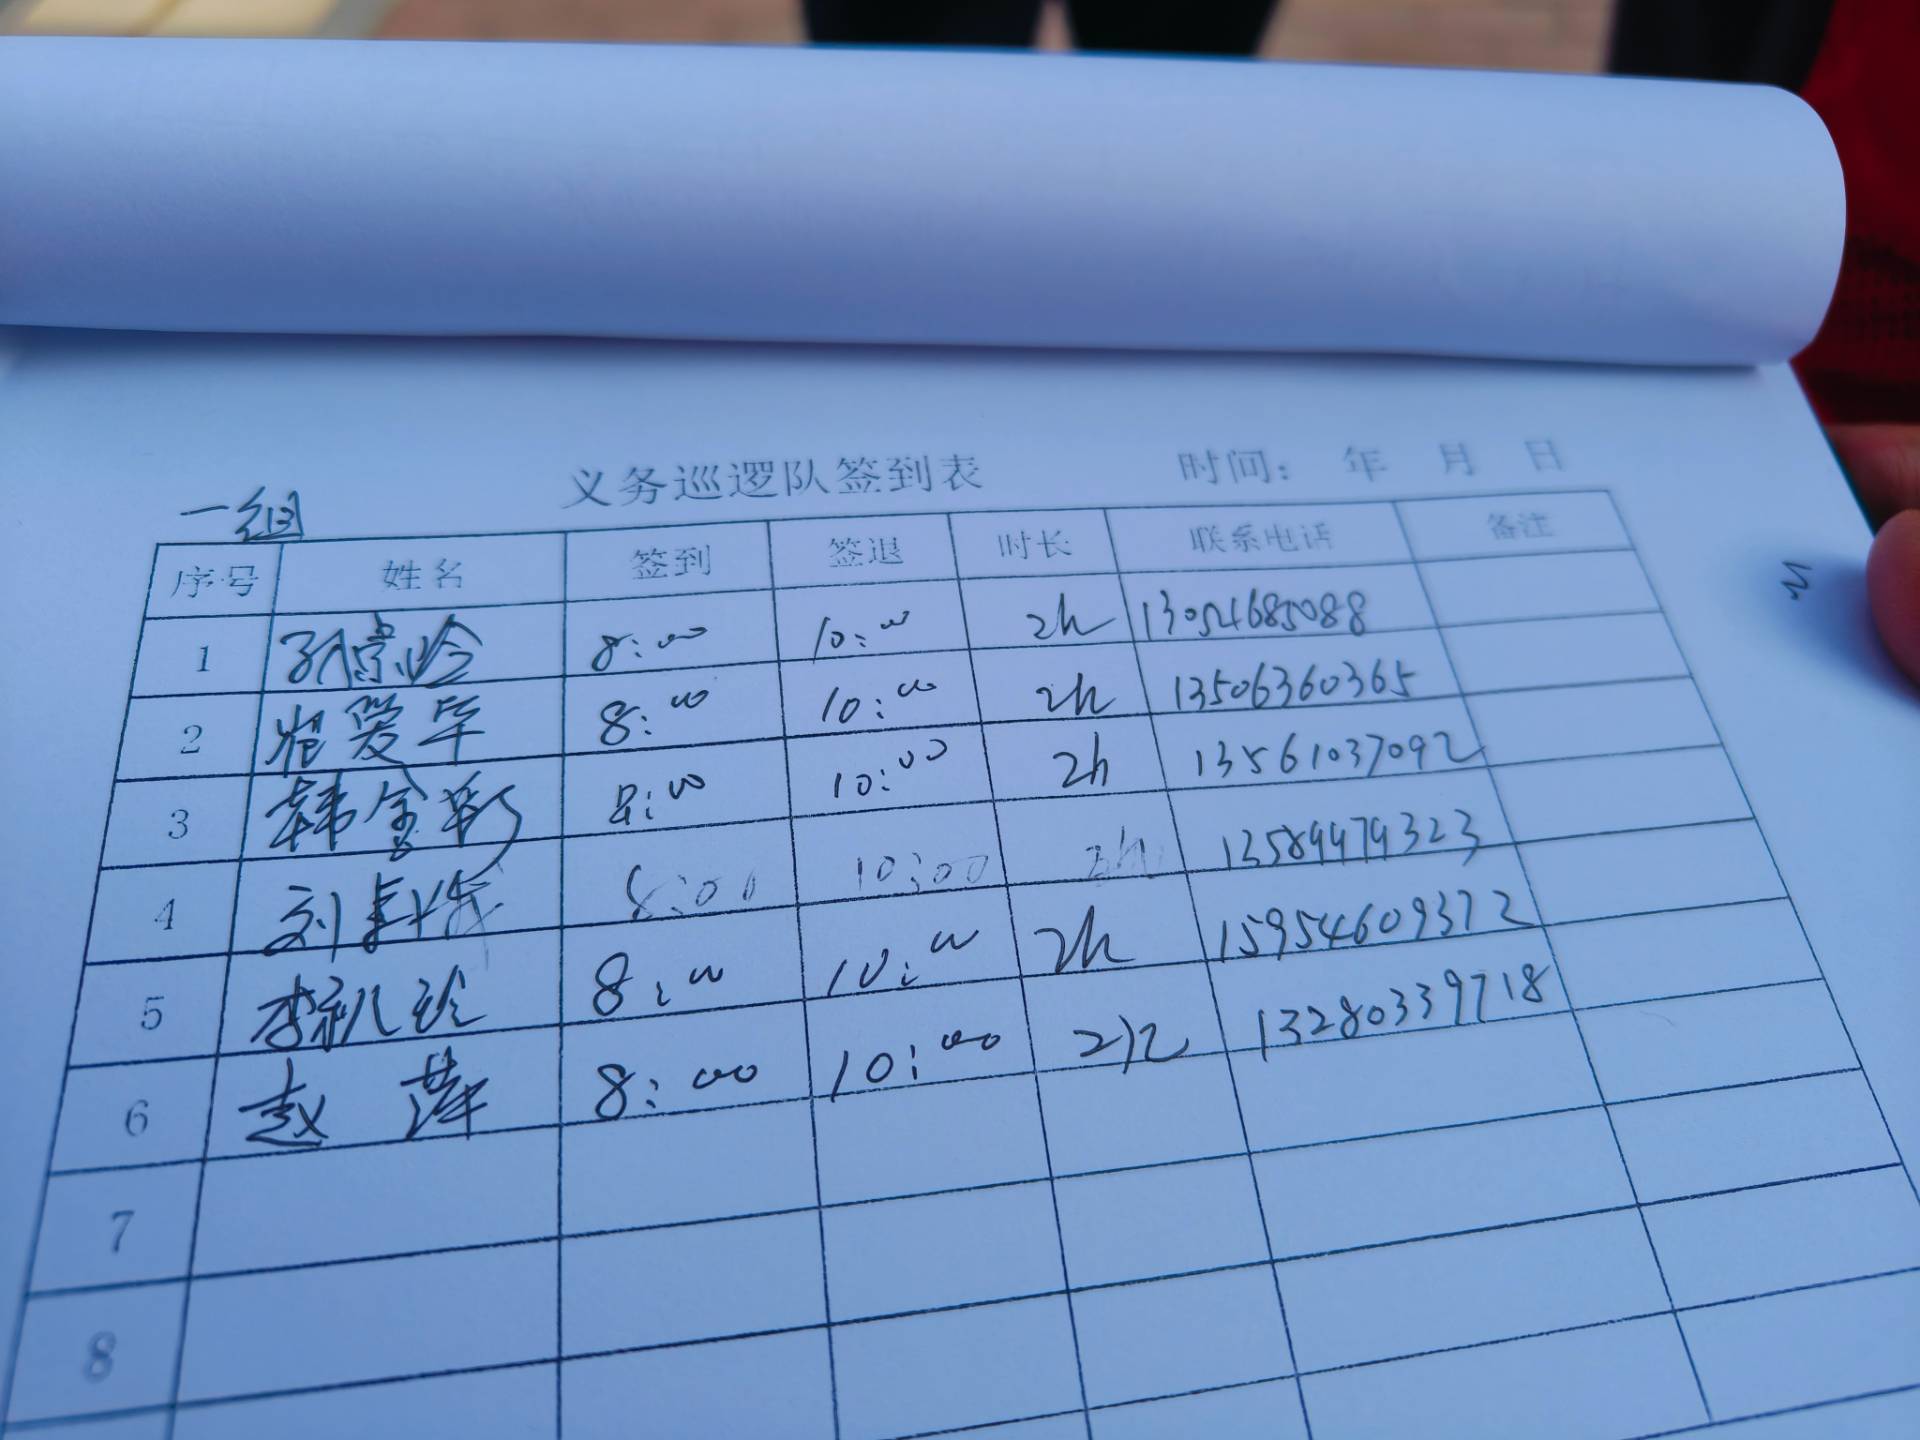 义务巡逻队签到表 时间： 年 月 日
一组
序号 姓名 签到 签退 时长 联系电话 备注
1 8:00 10:00 2h 13054685088
2 爱华 8:00 10:00 2h 13506360365
3 韩金彩 8:00 10:00 2h 13561037092
4 刘 8:00 10:00 2h 13589979323
5 李 玲 8:00 10:00 2h 15954609372
6 赵萍 8:00 10:00 2h 13280339718
7
8